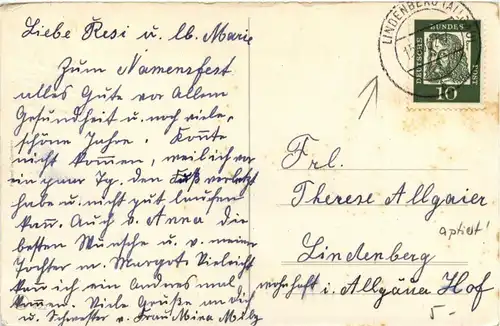 Liebe Resi u. lb. Marie
Zum Namensfest
alles Gute vor allem
Gesundheit u. noch viele
schöne Jahre. Konnte
nicht kommen, weil ich vor
ein paar Tg. den Fuß verletzt
habe u. nicht gut laufen
kan. Auch v. Anna die
besten Wünsche u. v. meiner
Tochter m. Margot. Vieleicht
kan ich ein anderes mal
kommen. Viele Grüße an dich
u. Schwester v. Frau Mina Milz
LINDENBERG (ALLGÄU)
DEUTSCHE BUNDESPOST
10
Frl.
Therese Allgaier
Lindenberg
wohnhaft i. Allgäuer Hof
aptiert!
5-